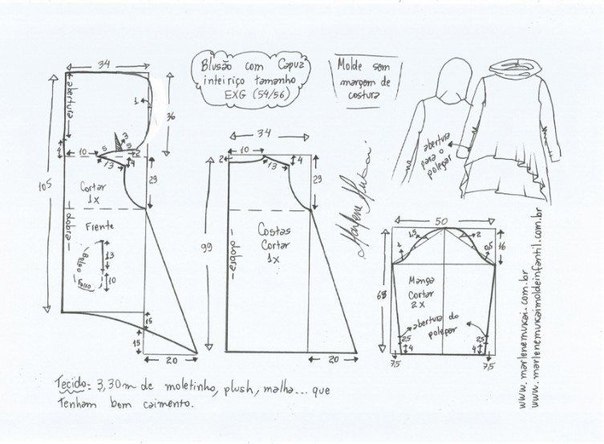 Blusão com Capuz
inteiriço tamanho
EXG (54/56)
Molde sem
margem de
costura
34
abertura
1
36
10
5
3
3
2
13
4
105
Cortar
1x
29
dobra
Frente
Bolso
Faca
13
10
15
15
20
34
10
2
4
13
29
99
dobra
Costas
Cortar
1x
20
Marlene Mukai.
abertura
para o
polegar
50
1,5
2
1
0,5
16
68
Manga
Cortar
2x
abertura do
polegar
25
4
25
4
7,5
7,5
www.marlenemukai.com.br
www.marlenemukaimoldeinfantil.com.br
Tecido: 3,30m de moletinho, plush, malha... que
Tenham bom caimento.